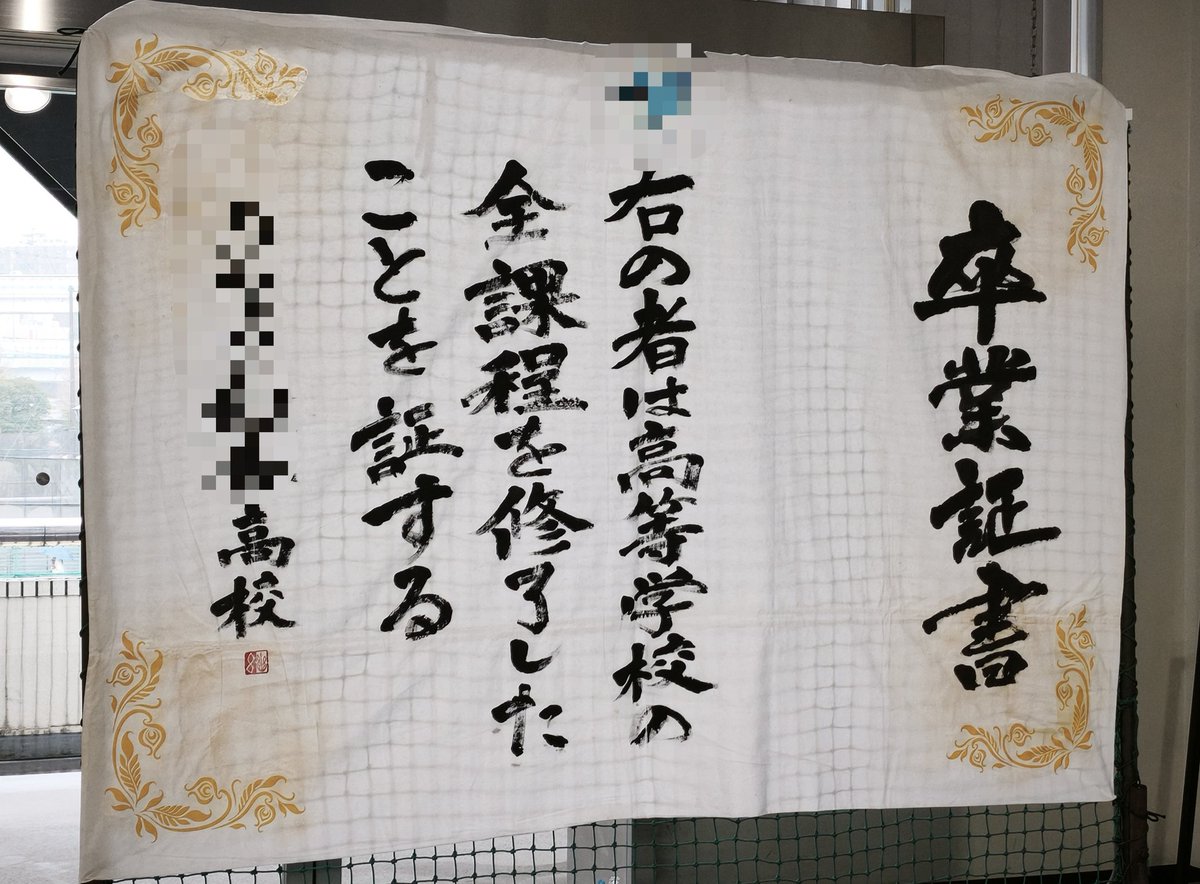 卒業証書
右の者は高等学校の
全課程を修了した
ことを証する
高校